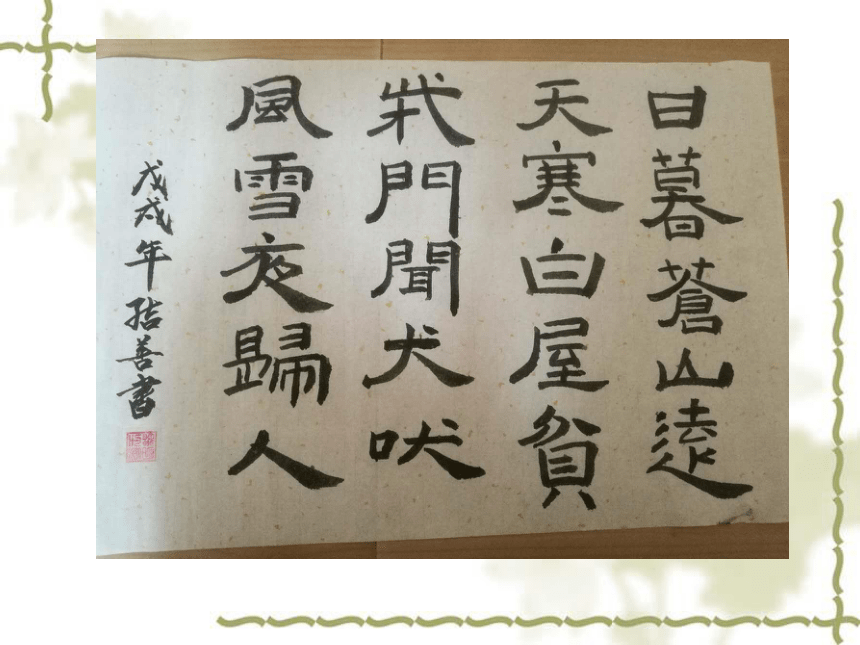 日暮蒼山遠
天寒白屋貧
門聞犬吠
風雪夜歸人
戊戌年善書